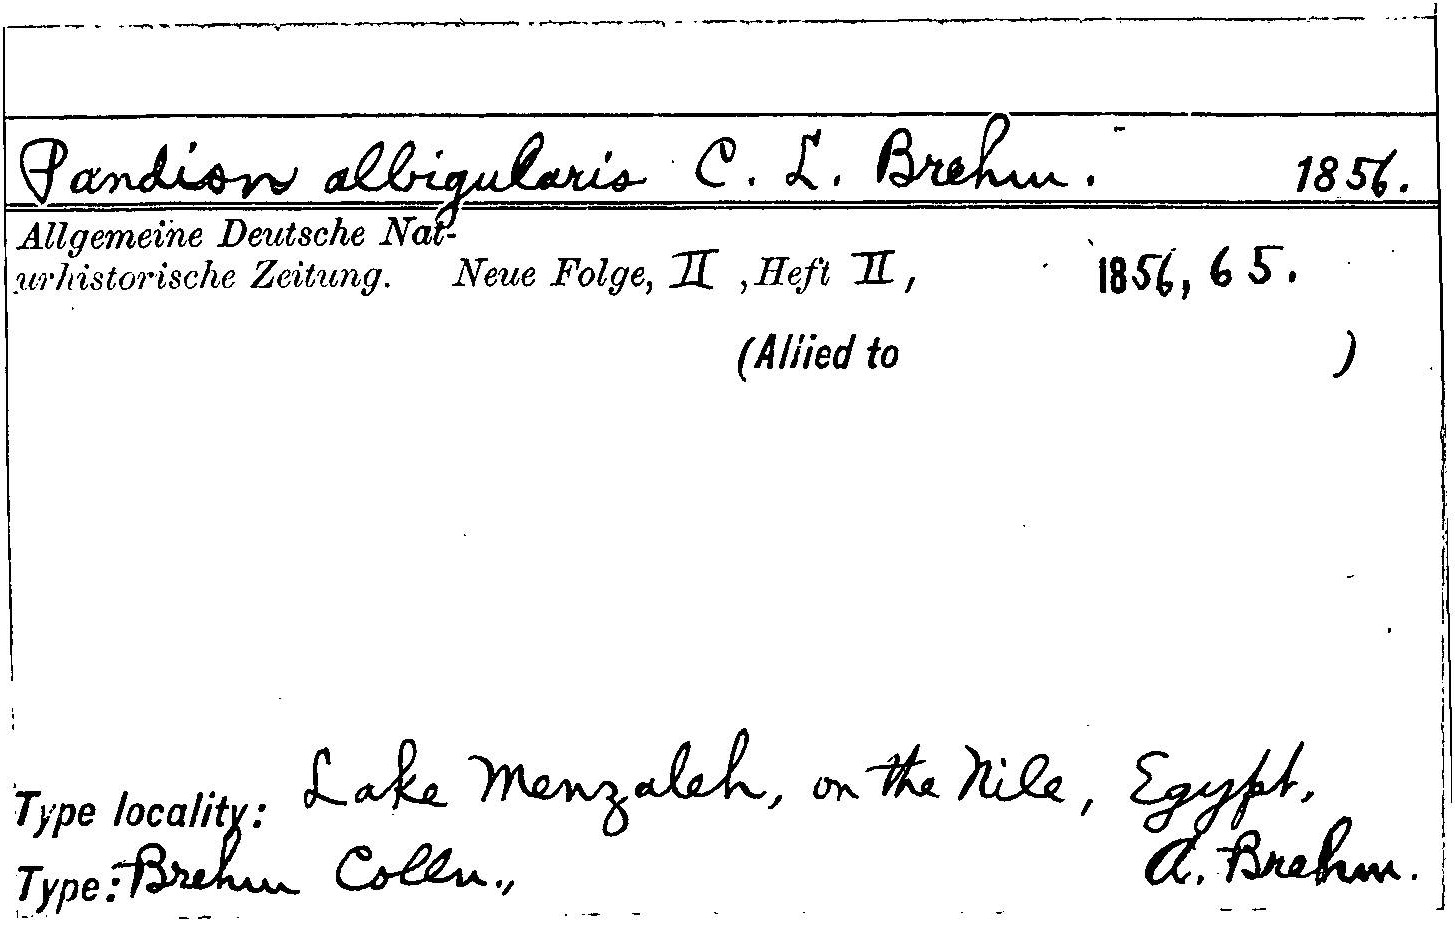 Pandion albigularis C. L. Brehm. 1856.
Allgemeine Deutsche Nat-
urhistorische Zeitung. Neue Folge, II, Heft II, 1856, 65.
(Allied to )
Type locality: Lake Menzaleh, on the Nile, Egypt,
Type: Brehm Colln., A. Brehm.